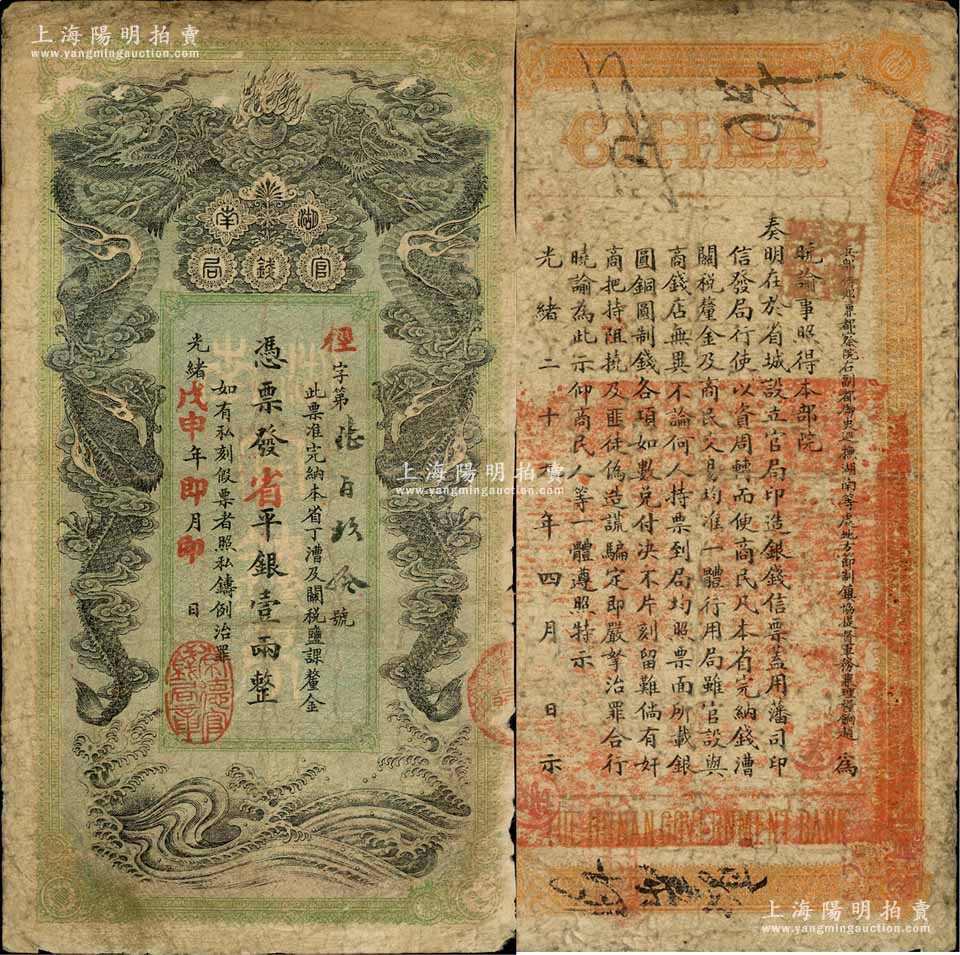 上海陽明拍賣
www.yangmingauction.com
湖南
官錢局
徑字第陸百玖拾號
此票准完納本省丁漕及關税鹽課釐金
憑票發省平銀壹兩整
如有私刻假票者照私鑄例治罪
光緒戊申年即月印日
CHINA
兵部侍郎兼都察院右副都御史巡撫湖南等處地方節制鎮協提督軍務兼理糧餉趙 為
曉諭事照得本部院
奏明在於省城設立官局印造銀錢信票蓋用藩司印
信發局行使以資周轉而便商民凡本省完納錢漕
關税釐金及商民交易均准一體行用局雖官設與
商錢店無異不論何人持票到局均照票面所載銀
圓銅圓制錢各項如數兑付决不片刻留難倘有奸
商把持阻撓及匪徒偽造謊騙定即嚴拏治罪合行
曉諭為此示仰商民人等一體遵照特示
光緒二十九年四月 日示
THE HUNAN GOVERNMENT BANK
上海陽明拍賣
www.yangmingauction.com
上海陽明拍賣
www.yangmingauction.com